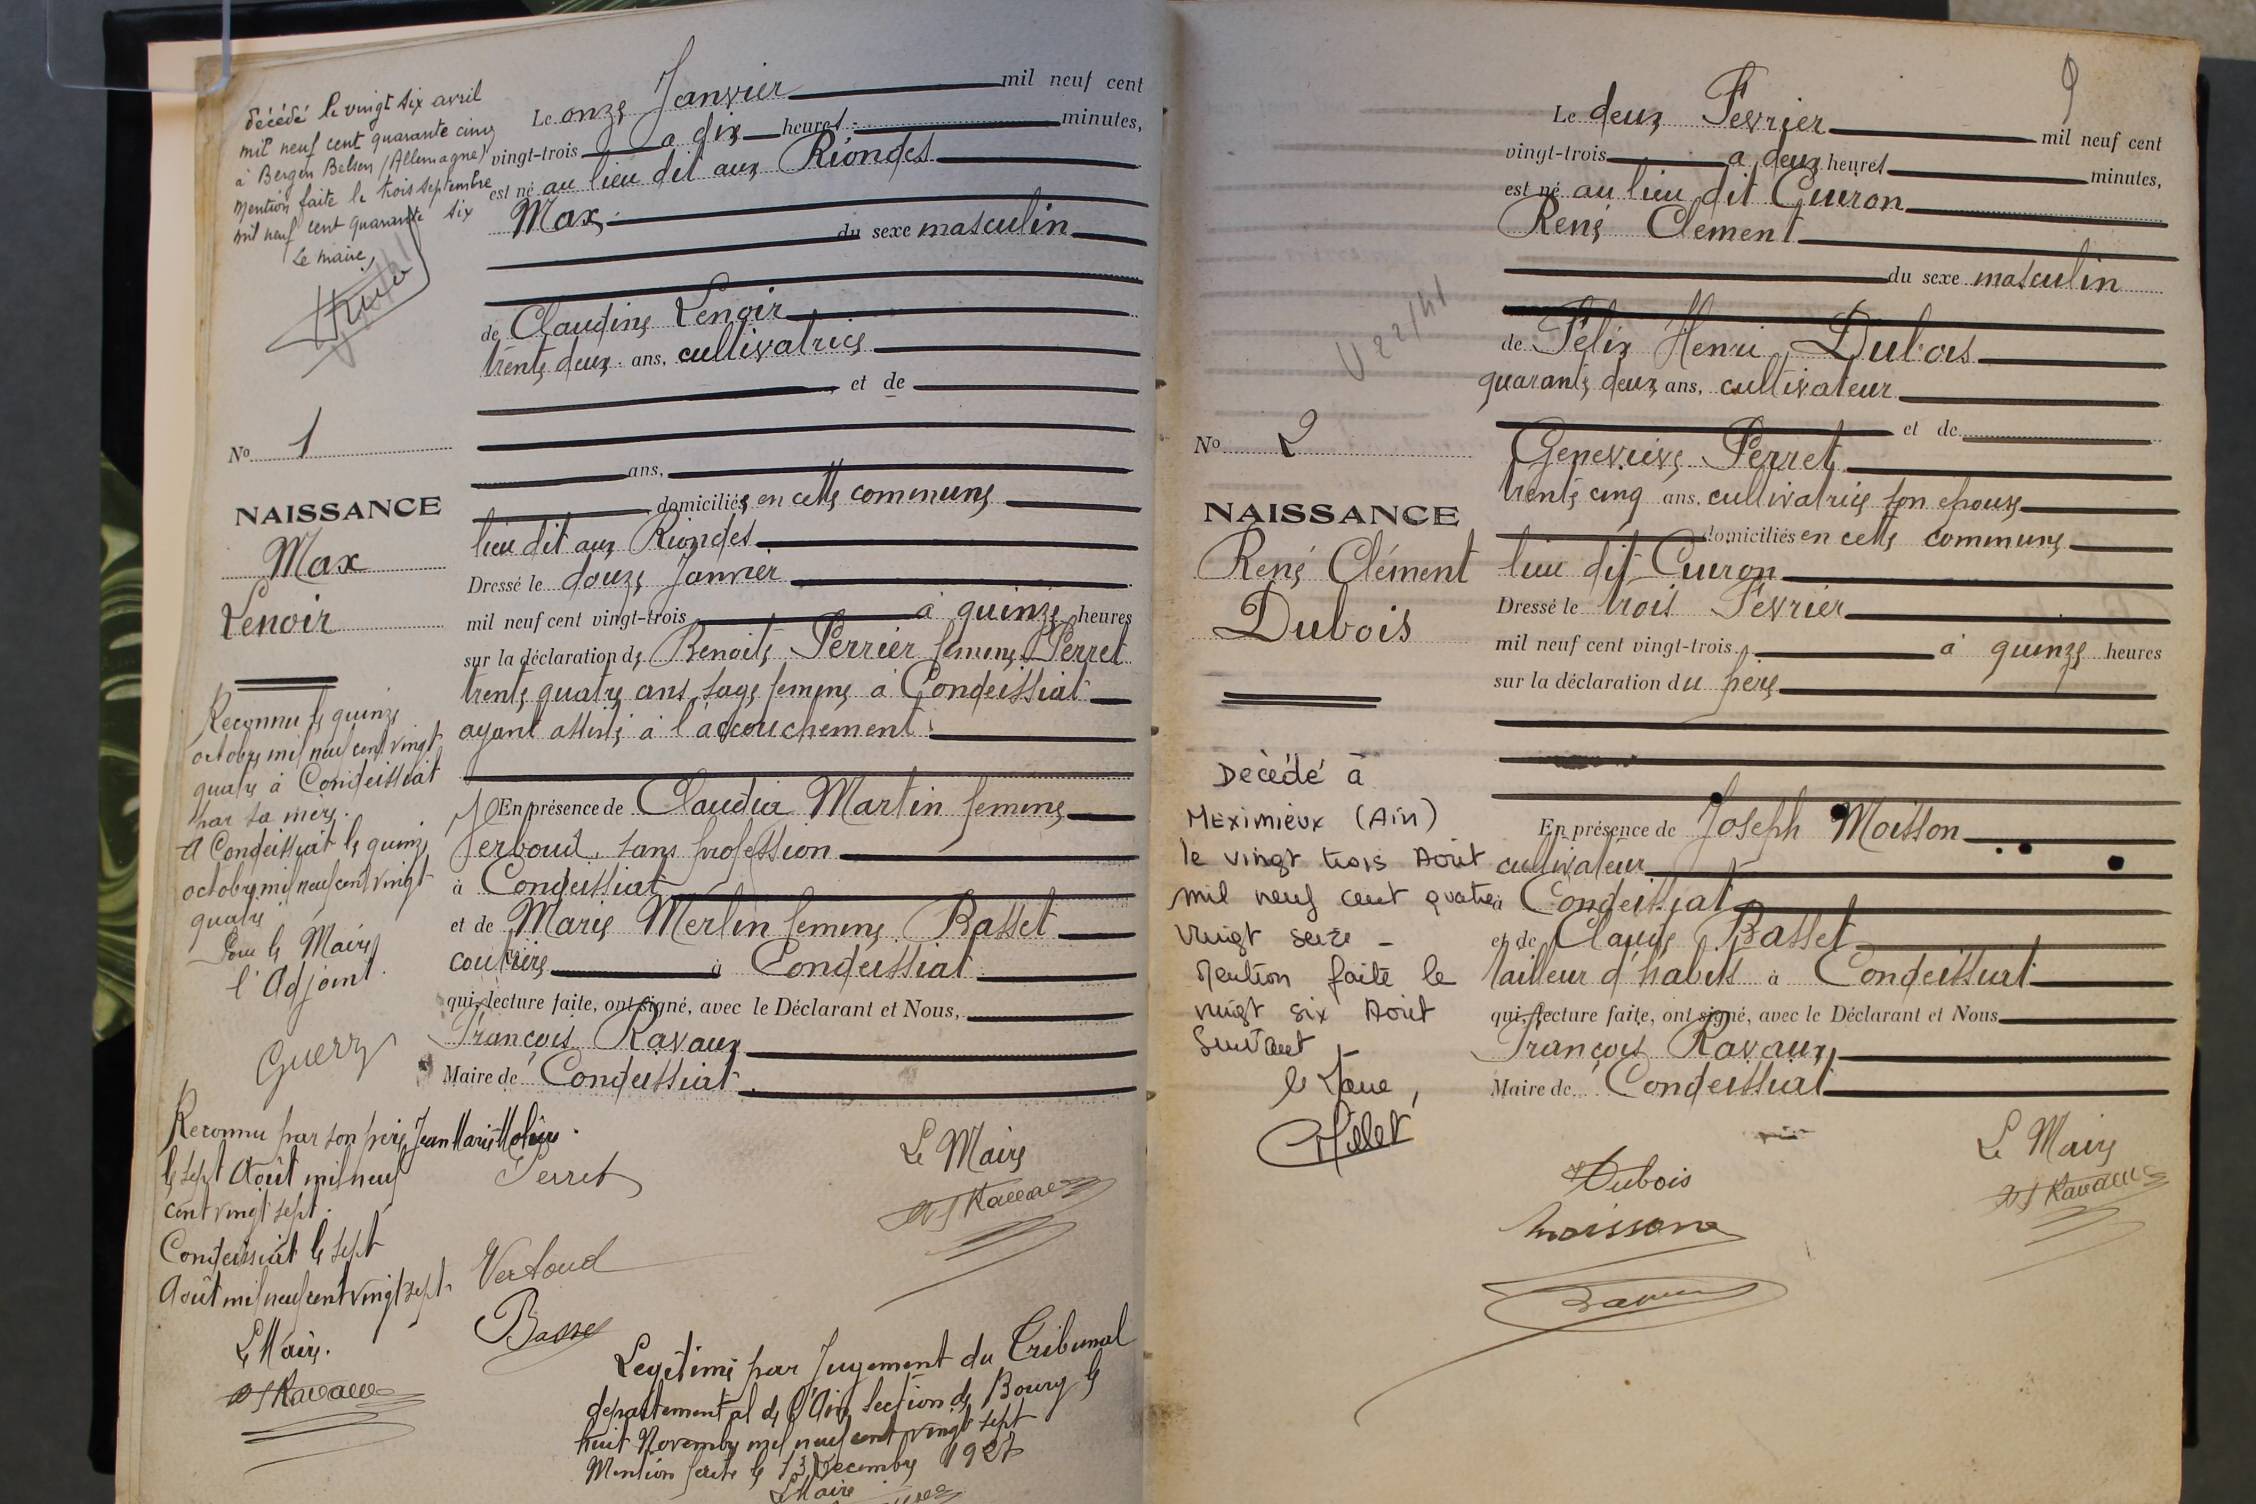 décédé le vingt six avril
mil neuf cent quarante cinq
à Bergen Belsen (Allemagne)
Mention faite le trois septembre
mil neuf cent quarante six
Le maire,
No 1
NAISSANCE
Max
Lenoir
Reconnu le quinze
octobre mil neuf cent vingt
quatre à Condeissiat
par sa mère.
A Condeissiat le quinze
octobre mil neuf cent vingt
quatre
Pour le Maire
l'Adjoint.
Guerry
Reconnu par son père Jean Marie
le sept Août mil neuf
cent vingt sept.
Condeissiat le sept
Août mil neuf cent vingt sept
Le Maire.
Ravaux
Le onze Janvier mil neuf cent
vingt-trois à dix heures minutes,
est né au lieu dit aux Riondes
Max
du sexe masculin
de Claudine Lenoir
trente deux ans, cultivatrice
et de
ans,
domiciliée en cette commune
lieu dit aux Riondes
Dressé le douze Janvier
mil neuf cent vingt-trois à quinze heures
sur la déclaration de Benoite Perrier femme Perret
trente quatre ans, sage femme à Condeissiat
ayant assisté à l'accouchement.
En présence de Claudia Martin femme
sans profession
à Condeissiat
et de Marie Merlin femme Basset
couturière à Condeissiat
qui, lecture faite, ont signé, avec le Déclarant et Nous,
François Ravaux
Maire de Condeissiat
Le Maire
Perret
Ravaux
Basset
Légitimé par Jugement du Tribunal
départemental de l'Ain section de Bourg le
huit Novembre mil neuf cent vingt sept
Mention faite le 13 Décembre 1927
Le Maire
9
No 2
NAISSANCE
René Clément
Dubois
Décédé à
MEXIMIEUX (Ain)
le vingt trois Août
mil neuf cent quatre
vingt seize -
Mention faite le
vingt six Août
Suivant -
le Maire,
Le deux Fevrier mil neuf cent
vingt-trois à deux heures minutes,
est né au lieu dit Cuiron
René Clement
du sexe masculin
de Félix Henri Dubois
quarante deux ans, cultivateur
et de
Geneviève Perret
trente cinq ans, cultivatrice son epouse
domiciliés en cette commune
lieu dit Cuiron
Dressé le trois Fevrier
mil neuf cent vingt-trois à quinze heures
sur la déclaration du père
En présence de Joseph Moisson
cultivateur
à Condeissiat
et de Claude Basset
tailleur d'habits à Condeissiat
qui, lecture faite, ont signé, avec le Déclarant et Nous
François Ravaux
Maire de Condeissiat
Le Maire
Dubois
Ravaux
moisson